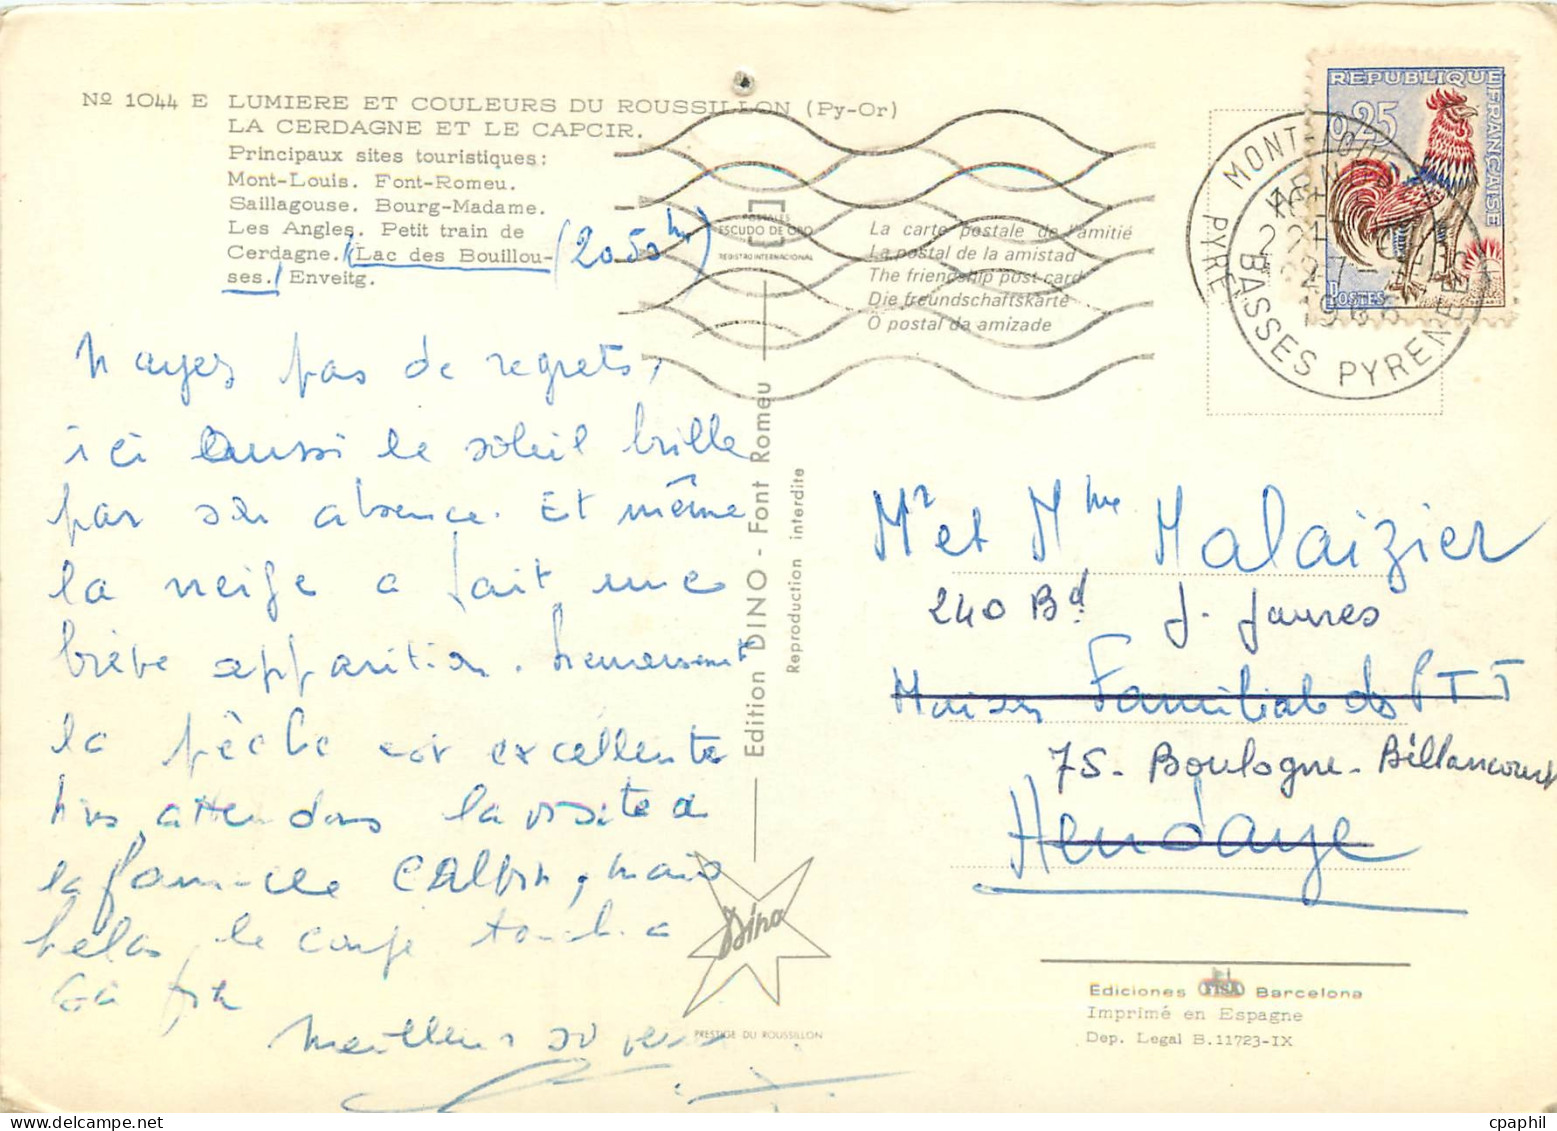 Nº 1044 E LUMIERE ET COULEURS DU ROUSSILLON (Py-Or)
LA CERDAGNE ET LE CAPCIR.
Principaux sites touristiques:
Mont-Louis. Font-Romeu.
Saillagouse. Bourg-Madame.
Les Angles. Petit train de
Cerdagne. (Lac des Bouillou- (2050 m)
ses.) Enveitg.
N'ayez pas de regrets,
ici aussi le soleil brille
par son absence. Et même
la neige a fait une
brève apparition. heureusement
la pêche est excellente
nous attendons la visite de
la famille mais
helas, le temps touche a
sa fin
Meilleurs souvenirs
POSTALES
ESCUDO DE ORO
REGISTRO INTERNACIONAL
La carte postale de l'amitié
La postal de la amistad
The friendship post-card
Die freundschaftskarte
O postal da amizade
Edition DINO - Font Romeu
Reproduction interdite
Dino
PRESTIGE DU ROUSSILLON
REPUBLIQUE FRANÇAISE
0,25
POSTES
MONT-LOUIS
PYRE
BASSES PYRENEES
1965
Mr et Mme Malaizier
240 Bd J. Jaures
Maison Familiale des PTT
75 - Boulogne - Billancourt
Hendaye
Ediciones FISA Barcelona
Imprimé en Espagne
Dep. Legal B. 11723-IX
cpaphil